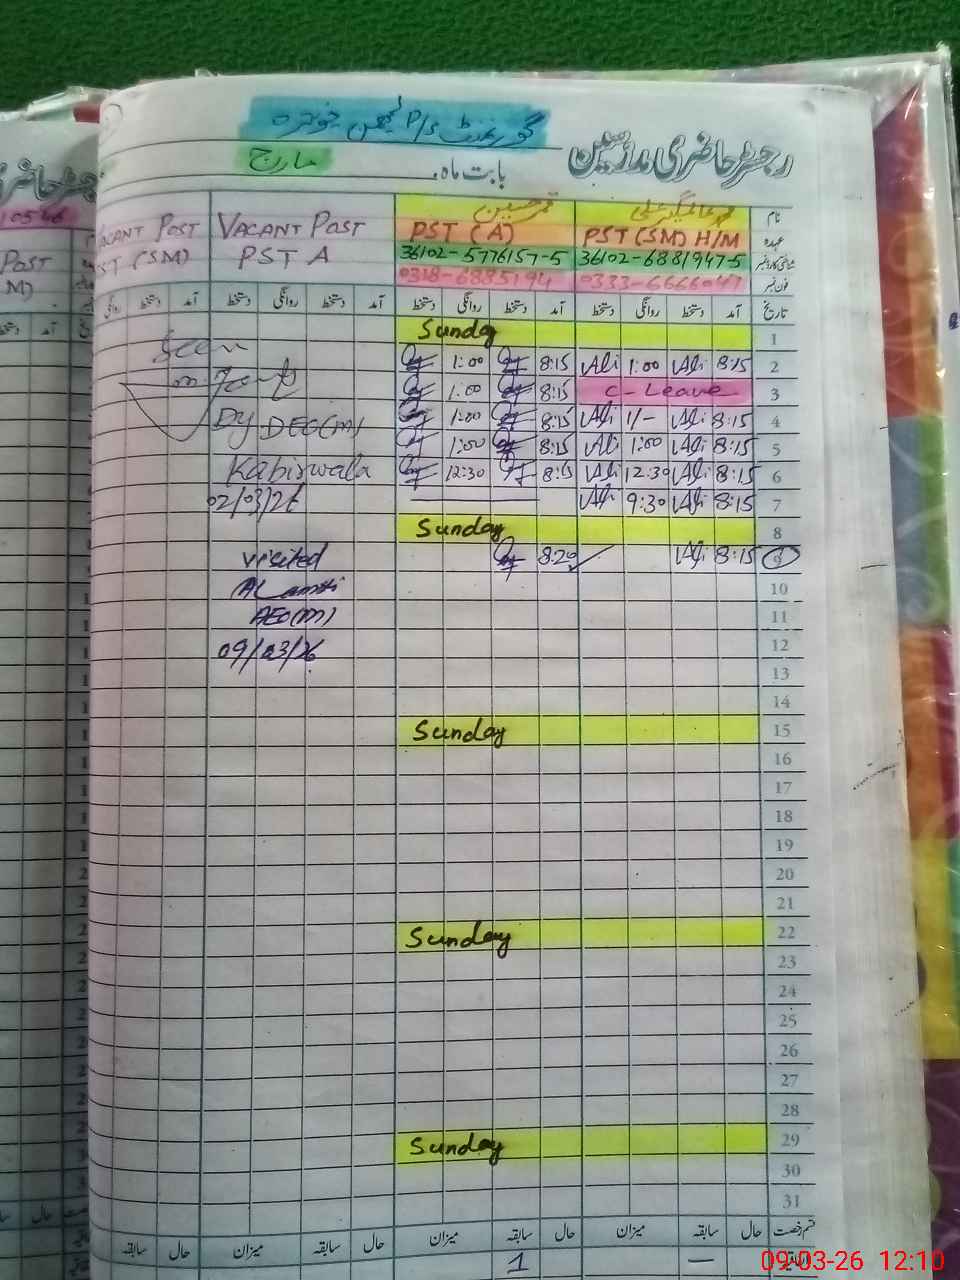 گورنمنٹ P/S
رجسٹر حاضری مدرسین
بابت ماہ۔ مارچ
نام
قمر حسین
عہدہ PST (SM) H/M PST (A) VACANT POST VACANT POST
PST A PST (SM)
شناختی کارڈ نمبر 36102-6881947-5 36102-5776157-5
فون نمبر 0333-6666047 0318-6885194
تاریخ آمد دستخط روانگی دستخط آمد دستخط روانگی دستخط آمد دستخط روانگی دستخط آمد دستخط روانگی
1 Sunday
2 8:15 Ali 1:00 Ali 8:15 1:00
3 C-Leave 8:15 1:00
4 8:15 Ali 1/- Ali 8:15 1:00
5 8:15 Ali 1:00 Ali 8:15 1:00
6 8:15 Ali 12:30 Ali 8:15 12:30
7 8:15 Ali 9:30 Ali
8 Sunday
9 8:15 Ali 8:20
10
11
12
13
14
15 Sunday
16
17
18
19
20
21
22 Sunday
23
24
25
26
27
28
29 Sunday
30
31
Seen
Dy DEO(m)
Kabirwala
02/03/26
visited
AEO(m)
09/03/26
قسم رخصت حال سابقہ میزان حال سابقہ میزان حال سابقہ میزان حال سابقہ
— 1
10546
POST
M)
09-03-26 12:10